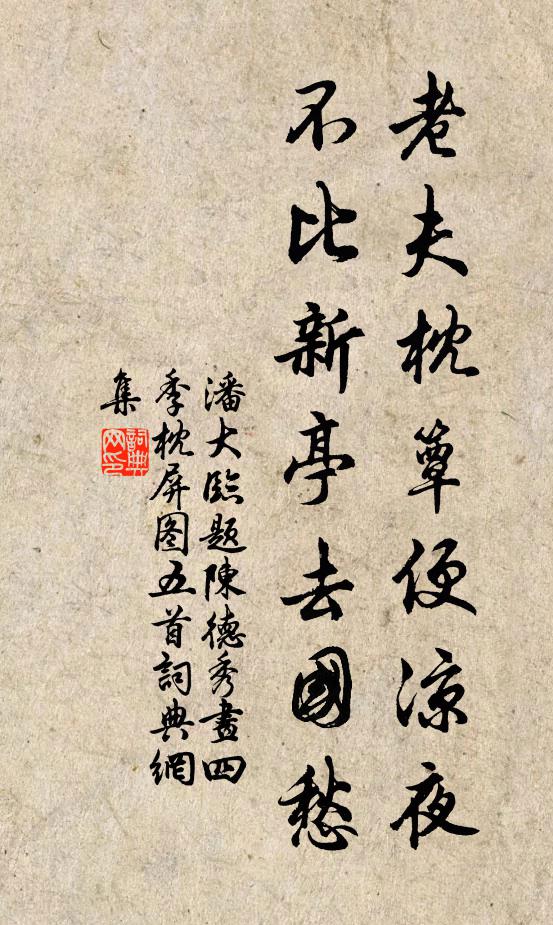 老夫枕簟便涼夜
不比新亭去國愁
潘大臨題陳德秀畫四
季枕屏图五首詞典網
集
詞典
网印